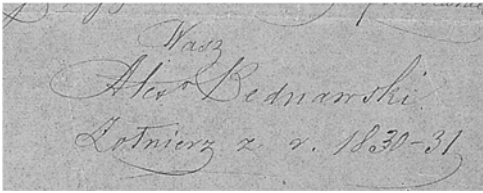 Wasz
Alexr Bednawski.
Żołnierz z r. 1830-31